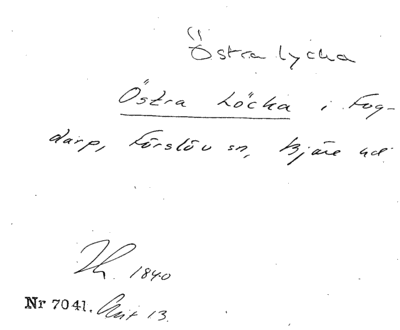 Östra Lycka
Östra Löcka i Fog-
darp, Förslöv sn, Bjäre hd.
Lh. 1840
Nr 7041. Akt 13.